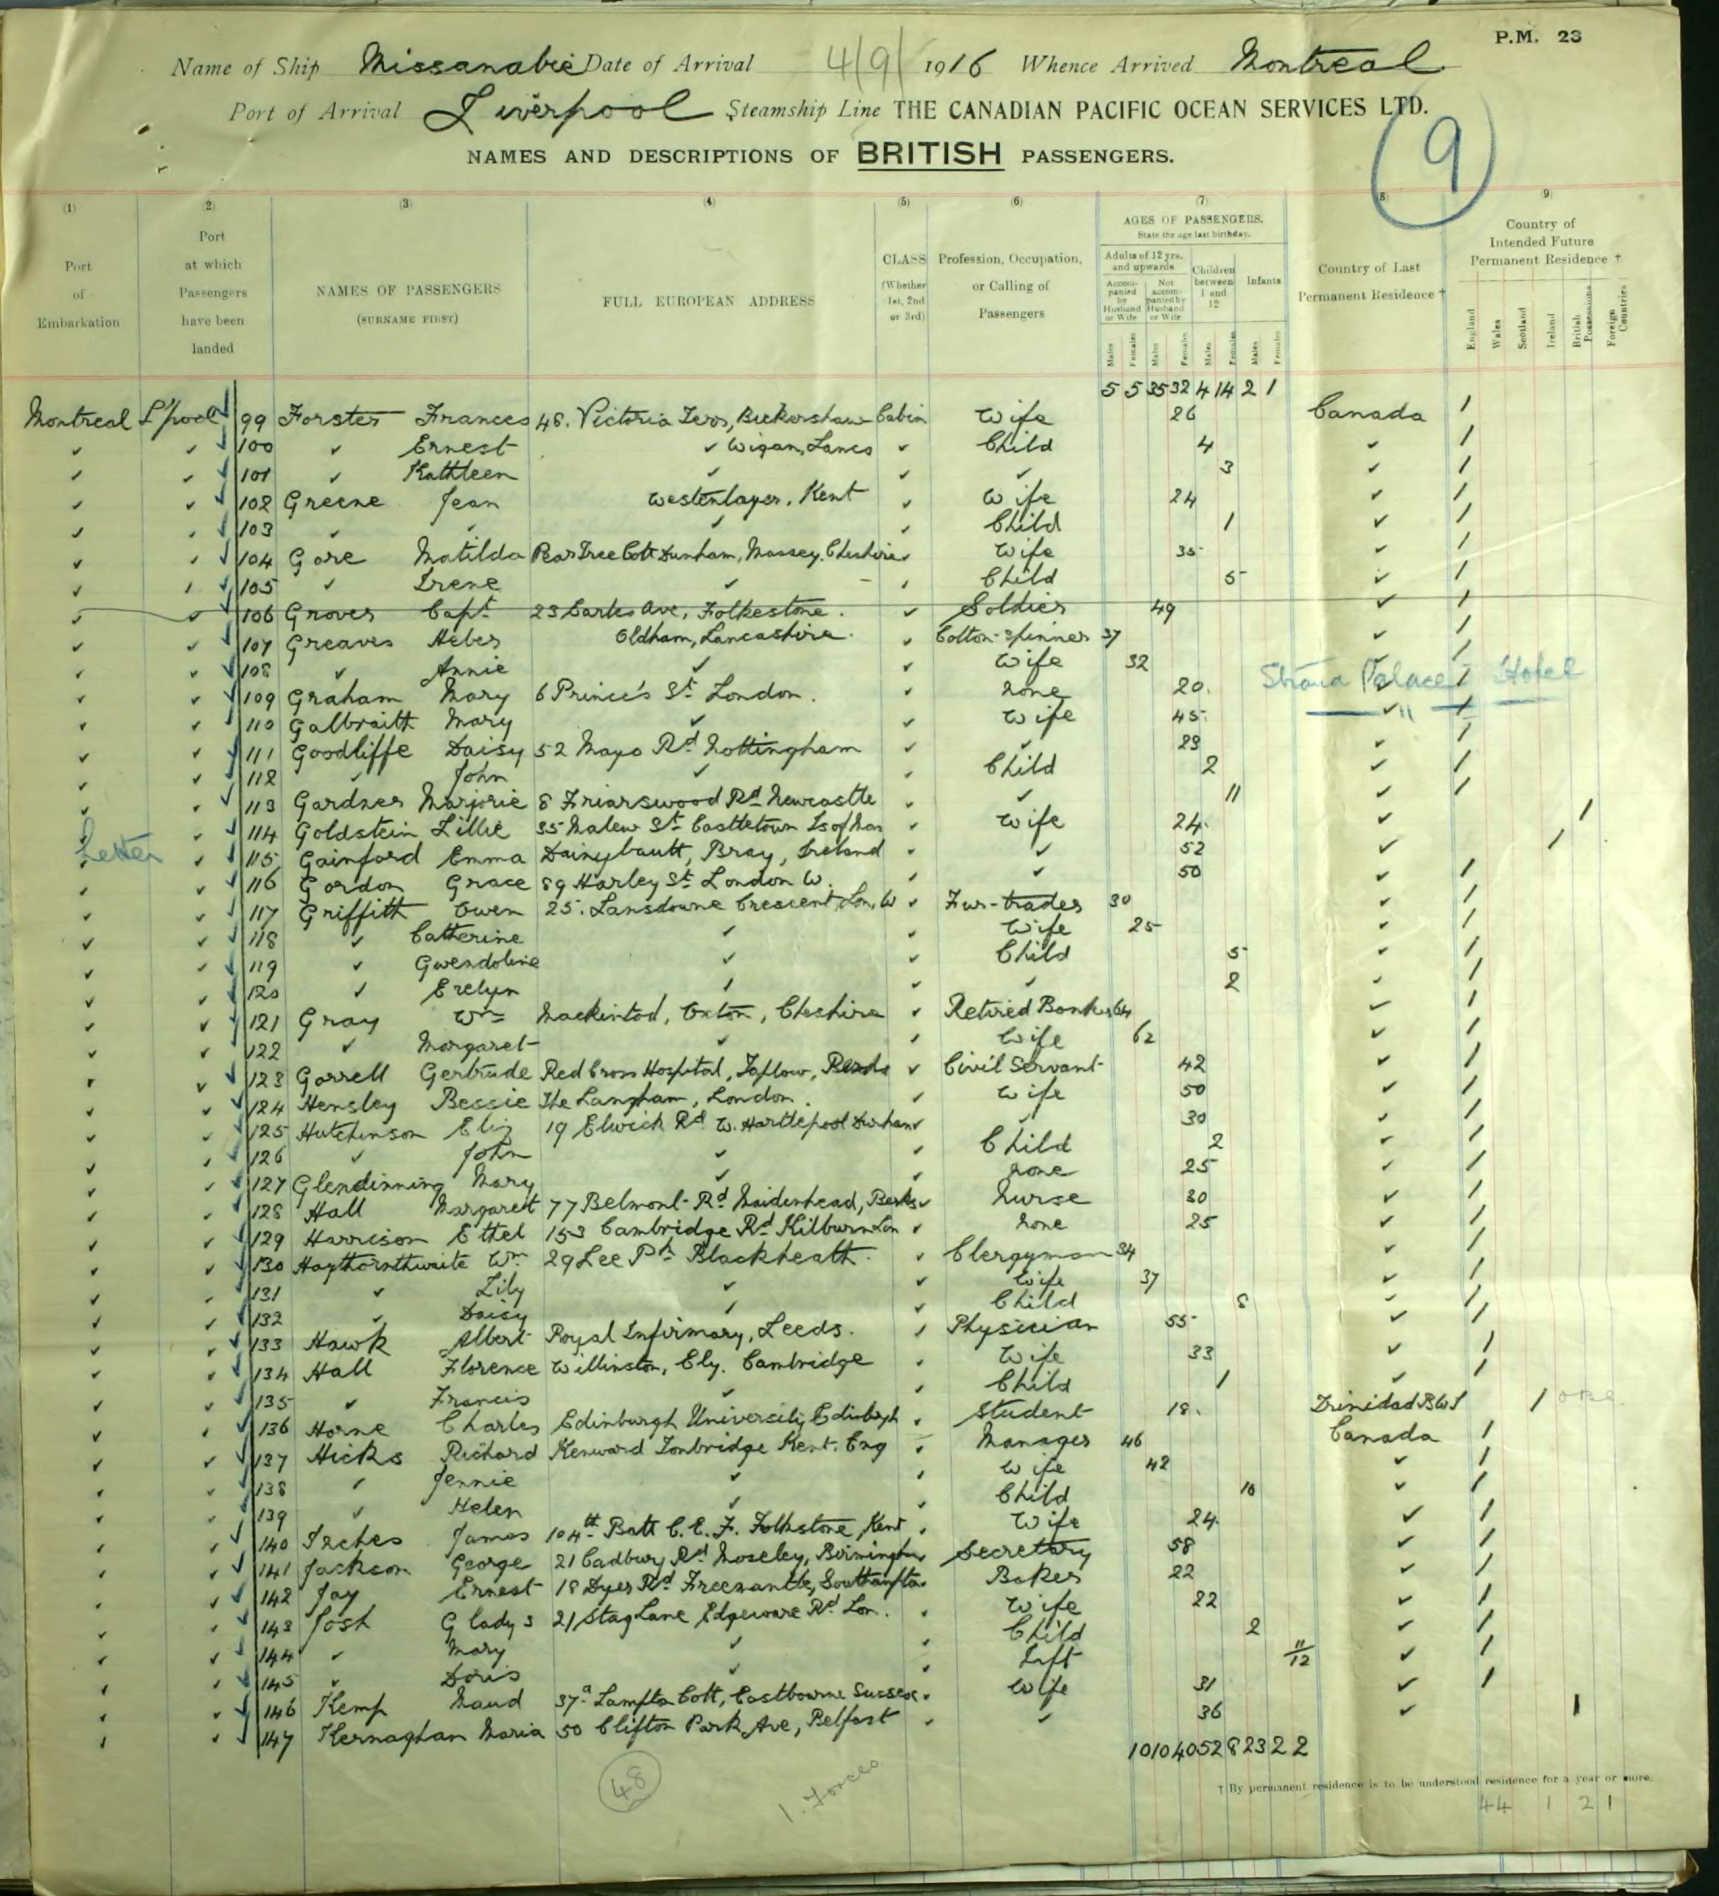 P.M. 23
Name of Ship Missanabie Date of Arrival 4/9/1916 Whence Arrived Montreal
Port of Arrival Liverpool Steamship Line THE CANADIAN PACIFIC OCEAN SERVICES LTD.
9
NAMES AND DESCRIPTIONS OF BRITISH PASSENGERS.
(1) Port of Embarkation
(2) Port at which Passengers have been landed
(3) NAMES OF PASSENGERS (SURNAME FIRST)
(4) FULL EUROPEAN ADDRESS
(5) CLASS (Whether 1st, 2nd or 3rd)
(6) Profession, Occupation, or Calling of Passengers
(7) AGES OF PASSENGERS. State the age last birthday.
Adults of 12 yrs. and upwards
Accompanied by Husband or Wife
Not accompanied by Husband or Wife
Children between 1 and 12
Infants
Males Females Males Females Males Females Males Females
(8) Country of Last Permanent Residence †
(9) Country of Intended Future Permanent Residence †
England Wales Scotland Ireland British Possessions Foreign Countries
5 5 35 32 4 14 2 1
Montreal L'pool 99 Forster Frances 48. Victoria Bickershaw Cabin Wife 26 Canada /
100 " Ernest " Wigan, Lancs " Child 4 " /
101 " Kathleen " " 3 " /
102 Greene Jean Kent " Wife 24 " /
103 " " " " Child 1 " /
104 Gore Matilda Pear Tree Cott Dunham, Massey, Cheshire " Wife 35 " /
105 " Irene " " Child 5 " /
106 Groves Capt. 23 Ave, Folkestone. " Soldier 49 " /
107 Greaves Heber Oldham, Lancashire. " Cotton-spinner 37 " /
108 " Annie " " Wife 32 " /
Strand Palace Hotel
109 Graham Mary 6 Prince's St. London. " none 20 " /
110 Galbraith Mary " " Wife 45 " /
111 Goodliffe Daisy 52 Mayo Rd Nottingham " " 29 " /
112 " John " " Child 2 " /
113 Gardner Marjorie 8 Friarswood Rd Newcastle " " 11 " /
114 Goldstein Lillie 35 Malew St Castletown Is of Man " Wife 24 " /
Letter 115 Gainford Emma Bray, Ireland " " 52 " /
116 Gordon Grace 89 Harley St. London W. " " 50 " /
117 Griffith Owen 25. Lansdowne Crescent, Lon. W " Fur-trader 30 " /
118 " Catherine " " Wife 25 " /
119 " Gwendoline " " Child 5 " /
120 " Evelyn " " " 2 " /
121 Gray Wm Oxton, Cheshire " Retired Banker 64 " /
122 " Margaret " " Wife 62 " /
123 Garrell Gertrude Red Cross Hospital, Taplow, " Civil Servant 42 " /
124 Hensley Bessie The Langham, London. " Wife 50 " /
125 Hutchinson Eliz 19 Elwick Rd W. Hartlepool Durham " " 30 " /
126 " John " " Child 2 " /
127 Glendinning Mary " none 25 " /
128 Hall Margaret 77 Belmont Rd Maidenhead, Berks " Nurse 30 " /
129 Harrison Ethel 153 Cambridge Rd Kilburn Lon " none 25 " /
130 Haythornthwaite Wm 29 Lee Pk Blackheath. " Clergyman 34 " /
131 " Lily " " Wife 37 " /
132 " Daisy " " Child 8 " /
133 Hawk Albert Royal Infirmary, Leeds. " Physician 55 " /
134 Hall Florence Ely. Cambridge " Wife 33 " /
135 " Francis " " Child 1 " /
136 Horne Charles Edinburgh University Edinburgh " Student 18 Trinidad BWI /
137 Hicks Richard Kenward Tonbridge Kent. Eng " Manager 46 Canada /
138 " Jennie " " Wife 42 " /
139 " Helen " " Child 10 " /
140 Inches James 104th Batt C.E.F. Folkstone, Kent " Wife 24 " /
141 Jackson George 21 Cadbury Rd Moseley, Birmingham " Secretary 58 " /
142 Jay Ernest 18 Dyer Rd Freemantle, Southampton " Baker 22 " /
143 Josh Gladys 21 Stag Lane Edgeware Rd Lon. " Wife 22 " /
144 " Mary " " Child 2 " /
145 " Doris " " Inft 11/12 " /
146 Kemp Maud 37a Cott, Eastbourne Sussex " Wife 31 " /
147 Kernaghan Maria 50 Clifton Park Ave, Belfast " " 36 " /
10 10 40 52 8 23 2 2
48
1. Forces
† By permanent residence is to be understood residence for a year or more.
44 1 2 1